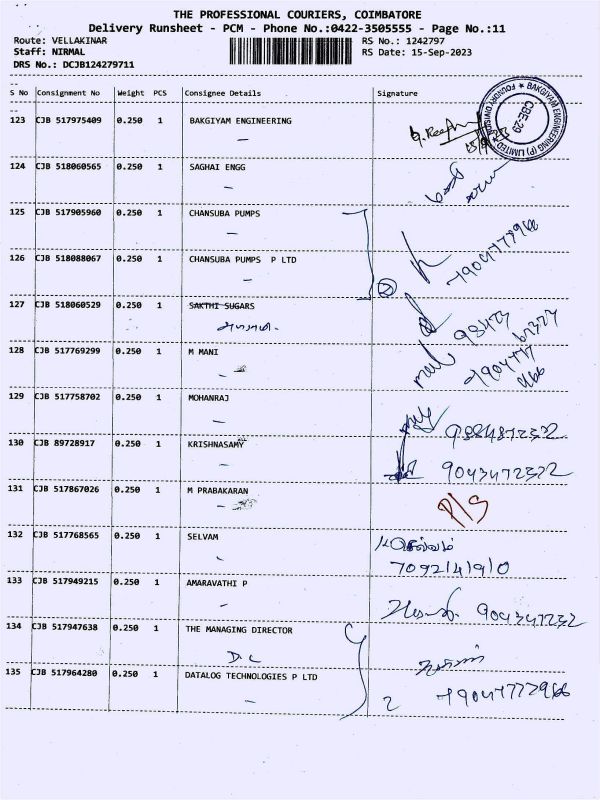 THE PROFESSIONAL COURIERS, COIMBATORE
Delivery Runsheet - PCM - Phone No.:0422-3505555 - Page No.:11
Route: VELLAKINAR RS No.: 1242797
Staff: NIRMAL RS Date: 15-Sep-2023
DRS No.: DCJB124279711
S No Consignment No Weight PCS Consignee Details Signature
BAKGIYAM ENGINEERING (P) LIMITED FOUNDRY DIVISION CBE-29
123 CJB 517975409 0.250 1 BAKGIYAM ENGINEERING
124 CJB 518060565 0.250 1 SAGHAI ENGG
125 CJB 517905960 0.250 1 CHANSUBA PUMPS
126 CJB 518088067 0.250 1 CHANSUBA PUMPS P LTD
7904777966
127 CJB 518060529 0.250 1 SAKTHI SUGARS
128 CJB 517769299 0.250 1 M MANI
129 CJB 517758702 0.250 1 MOHANRAJ
130 CJB 89728917 0.250 1 KRISHNASAMY
131 CJB 517867026 0.250 1 M PRABAKARAN
P/S
132 CJB 517768565 0.250 1 SELVAM
7092141910
133 CJB 517949215 0.250 1 AMARAVATHI P
134 CJB 517947638 0.250 1 THE MANAGING DIRECTOR
D.C
135 CJB 517964280 0.250 1 DATALOG TECHNOLOGIES P LTD
2